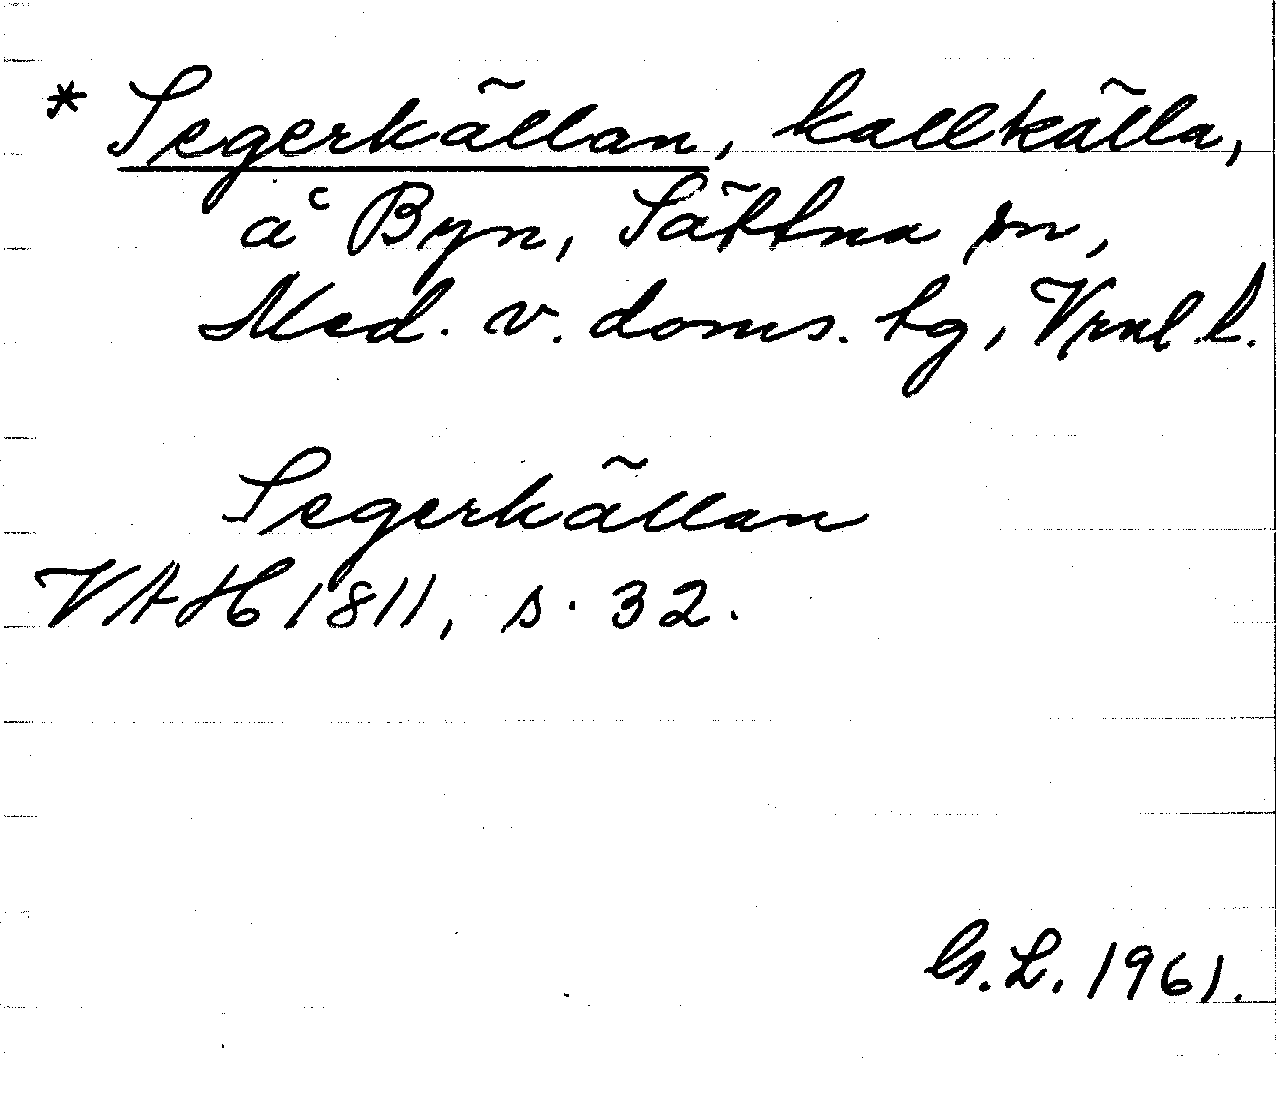 * Segerkällan, kallkälla,
å Byn, Sättna sn,
Med. v. doms. tg, Vrnl l.
Segerkällan
VAH 1811, s. 32.
G. L. 1961.